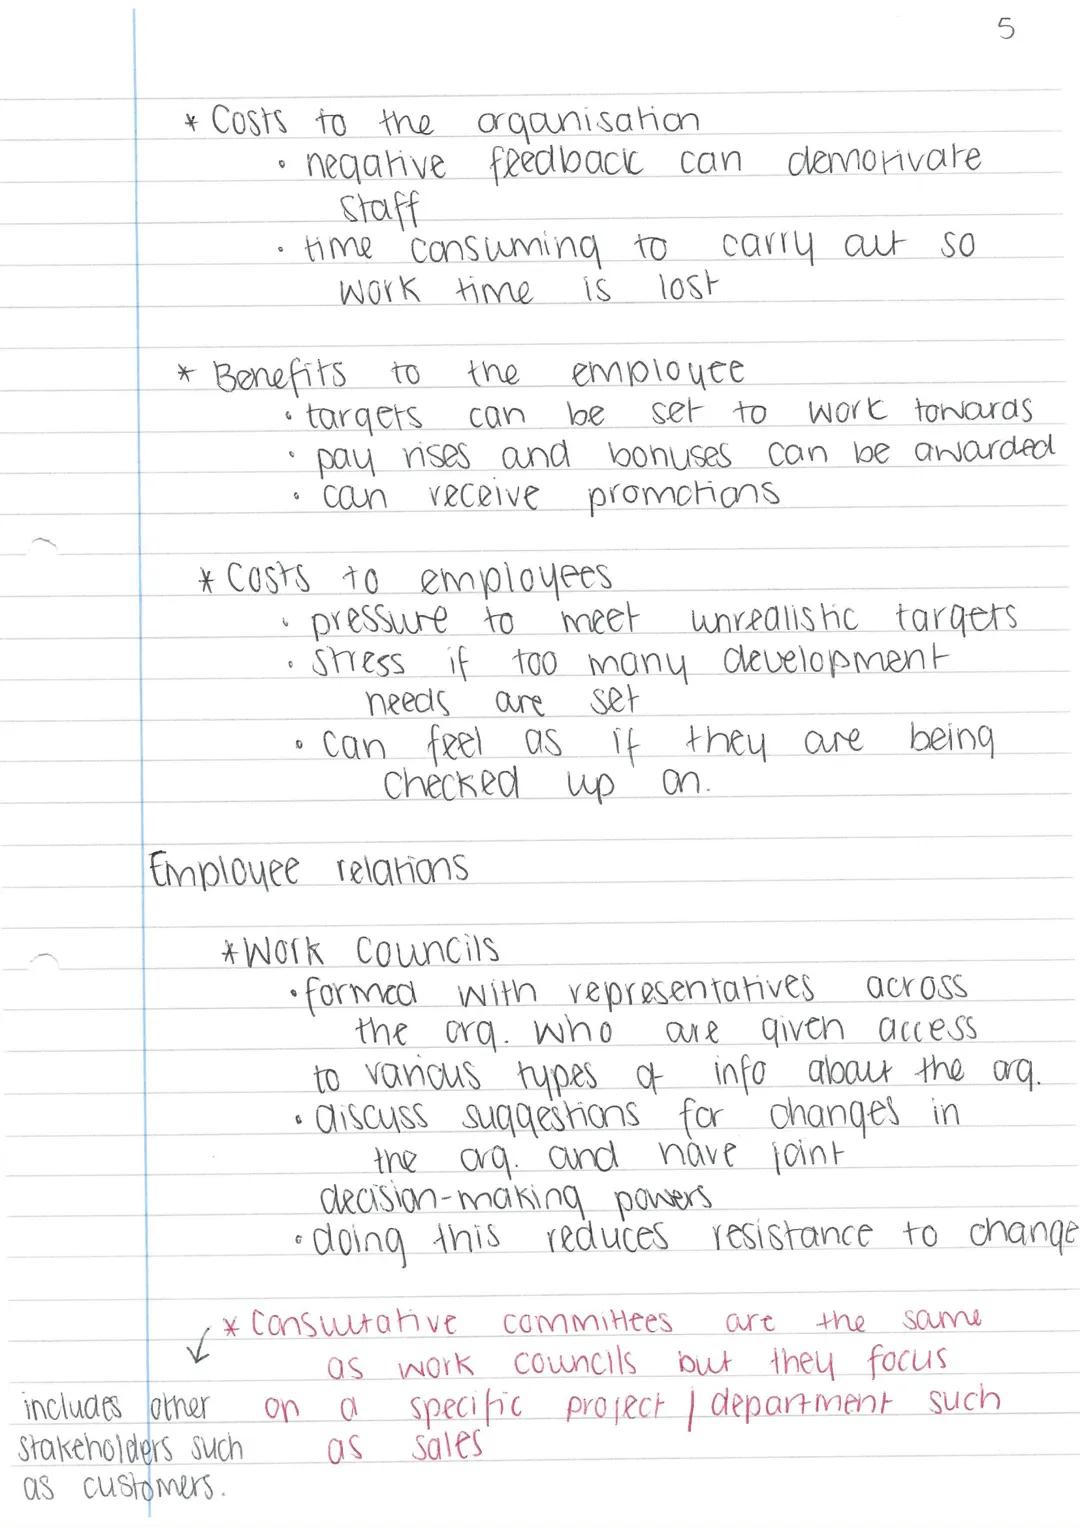 5
* Costs to the organisation
• negative feedback can demotivate
staff
• time consuming to carry out so
work time is lost
* Benefits to the employee
• targets can be set to work towards
• pay rises and bonuses can be awarded
• can receive promotions
* Costs to employees
• pressure to meet unrealistic targets
• stress if too many development
needs are set
• can feel as if they are being
checked up on.
Employee relations
* Work Councils
• formed with representatives across
the org. who are given access
to various types of info about the org.
• discuss suggestions for changes in
the org. and have joint
decision-making powers
• doing this reduces resistance to change
* Consultative committees are the same
as work councils but they focus
on a specific project / department such
as sales
includes other
stakeholders such
as customers.